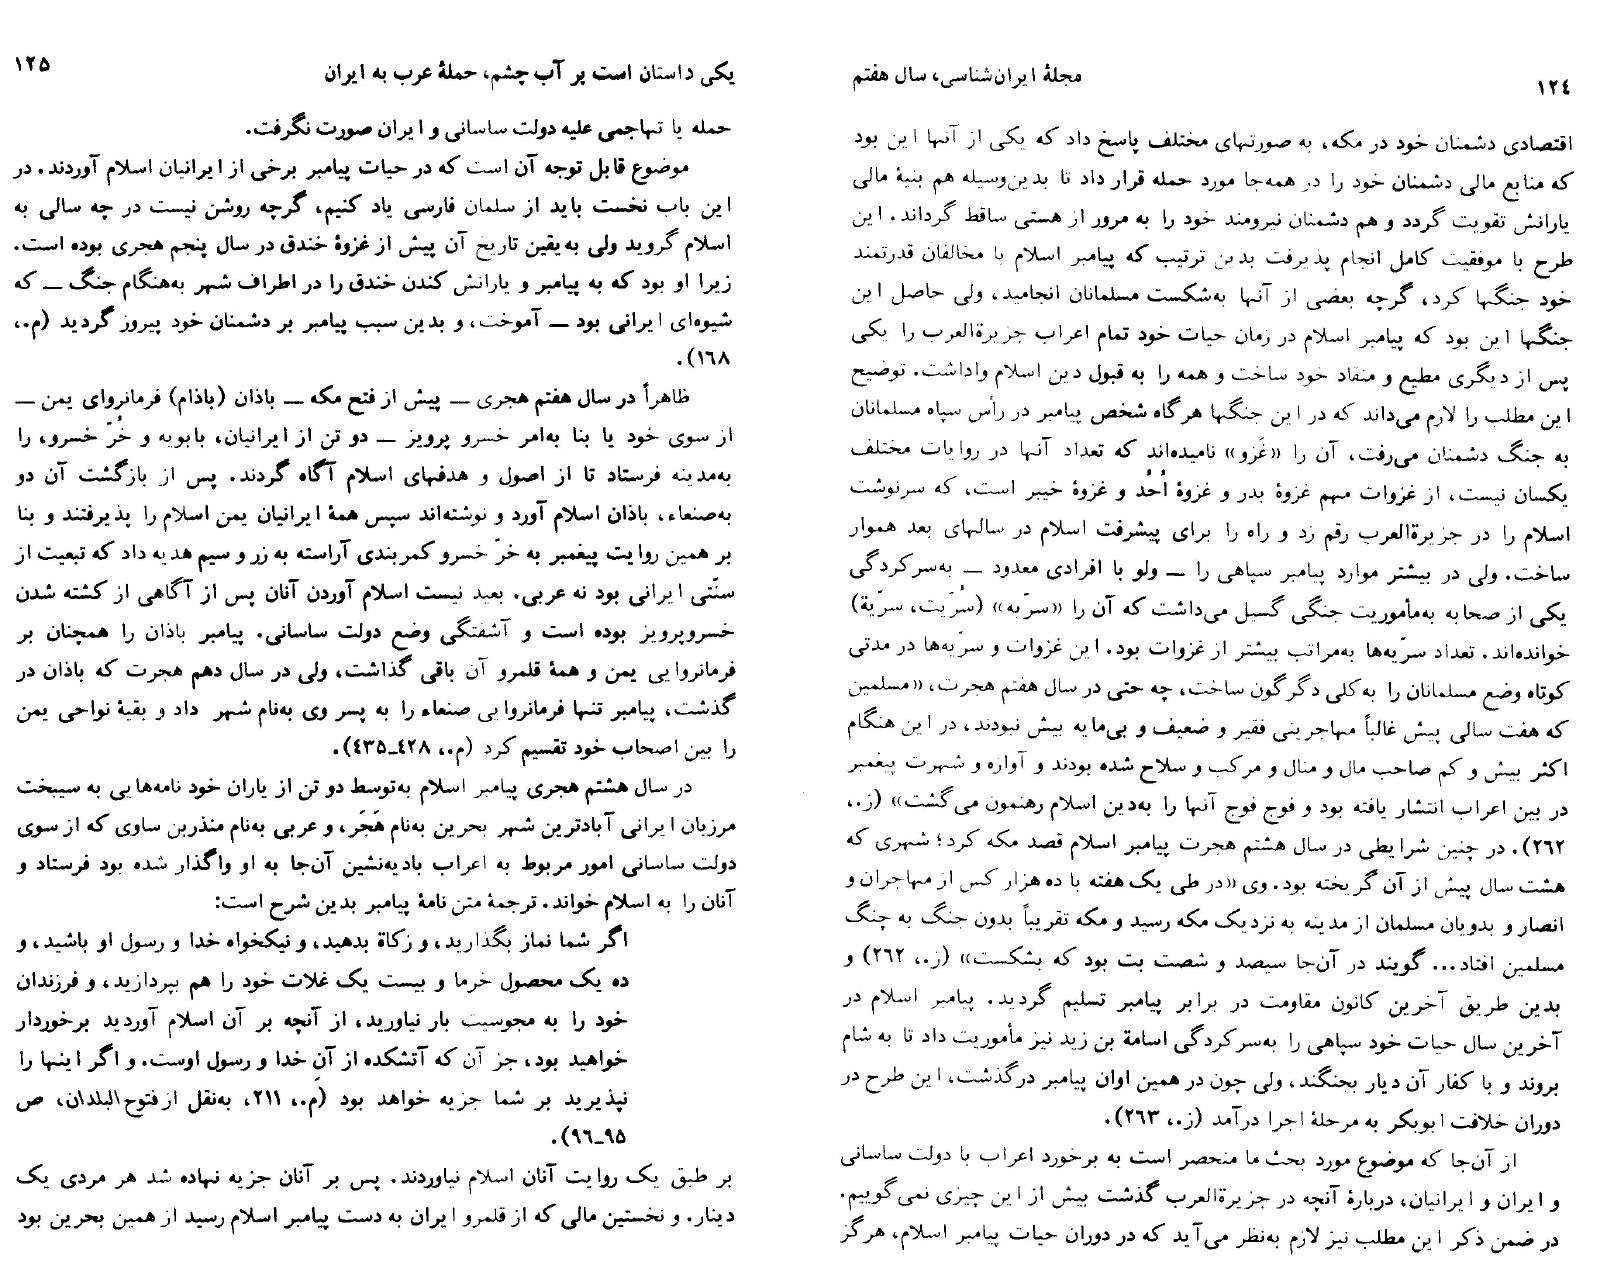 ۱۲٤
مجلهٔ ایران‌شناسی، سال هفتم
اقتصادی دشمنان خود در مکه، به صورتهای مختلف پاسخ داد که یکی از آنها این بود
که منابع مالی دشمنان خود را در همه‌جا مورد حمله قرار داد تا بدین‌وسیله هم بنیهٔ مالی
یارانش تقویت گردد و هم دشمنان نیرومند خود را به مرور از هستی ساقط گرداند. این
طرح با موفقیت کامل انجام پذیرفت بدین ترتیب که پیامبر اسلام با مخالفان قدرتمند
خود جنگها کرد، گرچه بعضی از آنها به‌شکست مسلمانان انجامید، ولی حاصل این
جنگها این بود که پیامبر اسلام در زمان حیات خود تمام اعراب جزیرةالعرب را یکی
پس از دیگری مطیع و منقاد خود ساخت و همه را به قبول دین اسلام واداشت. توضیح
این مطلب را لازم می‌داند که در این جنگها هرگاه شخص پیامبر در رأس سپاه مسلمانان
به جنگ دشمنان می‌رفت، آن را «غَزو» نامیده‌اند که تعداد آنها در روایات مختلف
یکسان نیست، از غزوات مهم غزوهٔ بدر و غزوهٔ اُحُد و غزوهٔ خیبر است، که سرنوشت
اسلام را در جزیرةالعرب رقم زد و راه را برای پیشرفت اسلام در سالهای بعد هموار
ساخت. ولی در بیشتر موارد پیامبر سپاهی را ــ ولو با افرادی معدود ــ به‌سرکردگی
یکی از صحابه به‌مأموریت جنگی گسیل می‌داشت که آن را «سرّیه» (سُرّیت، سرّیة)
خوانده‌اند. تعداد سرّیه‌ها به‌مراتب بیشتر از غزوات بود. این غزوات و سرّیه‌ها در مدتی
کوتاه وضع مسلمانان را به‌کلی دگرگون ساخت، چه حتی در سال هفتم هجرت، «مسلمین
که هفت سالی پیش غالباً مهاجرینی فقیر و ضعیف و بی‌مایه بیش نبودند، در این هنگام
اکثر بیش و کم صاحب مال و منال و مرکب و سلاح شده بودند و آوازه و شهرت پیغمبر
در بین اعراب انتشار یافته بود و فوج فوج آنها را به‌دین اسلام رهنمون می‌گشت» (ز.،
۲٦۲). در چنین شرایطی در سال هشتم هجرت پیامبر اسلام قصد مکه کرد؛ شهری که
هشت سال پیش از آن گریخته بود. وی «در طی یک هفته با ده هزار کس از مهاجران و
انصار و بدویان مسلمان از مدینه به نزدیک مکه رسید و مکه تقریباً بدون جنگ به چنگ
مسلمین افتاد... گویند در آن‌جا سیصد و شصت بت بود که بشکست» (ز.، ۲٦۲) و
بدین طریق آخرین کانون مقاومت در برابر پیامبر تسلیم گردید. پیامبر اسلام در
آخرین سال حیات خود سپاهی را به‌سرکردگی اسامة بن زید نیز مأموریت داد تا به شام
بروند و با کفار آن دیار بجنگند، ولی چون در همین اوان پیامبر درگذشت، این طرح در
دوران خلافت ابوبکر به مرحلهٔ اجرا درآمد (ز.، ۲٦۳).
از آن‌جا که موضوع مورد بحث ما منحصر است به برخورد اعراب با دولت ساسانی
و ایران و ایرانیان، دربارهٔ آنچه در جزیرةالعرب گذشت بیش از این چیزی نمی‌گوییم.
در ضمن ذکر این مطلب نیز لازم به‌نظر می‌آید که در دوران حیات پیامبر اسلام، هرگز
یکی داستان است پر آب چشم، حملهٔ عرب به ایران
۱۲۵
حمله یا تهاجمی علیه دولت ساسانی و ایران صورت نگرفت.
موضوع قابل توجه آن است که در حیات پیامبر برخی از ایرانیان اسلام آوردند. در
این باب نخست باید از سلمان فارسی یاد کنیم، گرچه روشن نیست در چه سالی به
اسلام گروید ولی به‌یقین تاریخ آن پیش از غزوهٔ خندق در سال پنجم هجری بوده است.
زیرا او بود که به پیامبر و یارانش کندن خندق را در اطراف شهر به‌هنگام جنگ ــ که
شیوه‌ای ایرانی بود ــ آموخت، و بدین سبب پیامبر بر دشمنان خود پیروز گردید (م.،
۱٦۸).
ظاهراً در سال هفتم هجری ــ پیش از فتح مکه ــ باذان (باذام) فرمانروای یمن ــ
از سوی خود یا بنا به‌امر خسرو پرویز ــ دو تن از ایرانیان، بابویه و خُرّ خسرو، را
به‌مدینه فرستاد تا از اصول و هدفهای اسلام آگاه گردند. پس از بازگشت آن دو
به‌صنعاء، باذان اسلام آورد و نوشته‌اند سپس همهٔ ایرانیان یمن اسلام را پذیرفتند و بنا
بر همین روایت پیغمبر به خرّ خسرو کمربندی آراسته به زر و سیم هدیه داد که تبعیت از
سنّتی ایرانی بود نه عربی. بعید نیست اسلام آوردن آنان پس از آگاهی از کشته شدن
خسروپرویز بوده است و آشفتگی وضع دولت ساسانی. پیامبر باذان را همچنان بر
فرمانروایی یمن و همهٔ قلمرو آن باقی گذاشت، ولی در سال دهم هجرت که باذان در
گذشت، پیامبر تنها فرمانروایی صنعاء را به پسر وی به‌نام شهر داد و بقیهٔ نواحی یمن
را بین اصحاب خود تقسیم کرد (م.، ٤۲۸ـ٤۳۵).
در سال هشتم هجری پیامبر اسلام به‌توسط دو تن از یاران خود نامه‌هایی به سیبخت
مرزبان ایرانی آبادترین شهر بحرین به‌نام هَجَر، و عربی به‌نام منذربن ساوی که از سوی
دولت ساسانی امور مربوط به اعراب بادیه‌نشین آن‌جا به او واگذار شده بود فرستاد و
آنان را به اسلام خواند. ترجمهٔ متن نامهٔ پیامبر بدین شرح است:
اگر شما نماز بگذارید، و زکاة بدهید، و نیکخواه خدا و رسول او باشید، و
ده یک محصول خرما و بیست یک غلات خود را هم بپردازید، و فرزندان
خود را به مجوسیت بار نیاورید، از آنچه بر آن اسلام آوردید برخوردار
خواهید بود، جز آن که آتشکده از آنِ خدا و رسول اوست. و اگر اینها را
نپذیرید بر شما جزیه خواهد بود (م.، ۲۱۱، به‌نقل از فتوح‌البلدان، ص
۹۵ـ۹٦).
بر طبق یک روایت آنان اسلام نیاوردند. پس بر آنان جزیه نهاده شد هر مردی یک
دینار. و نخستین مالی که از قلمرو ایران به دست پیامبر اسلام رسید از همین بحرین بود